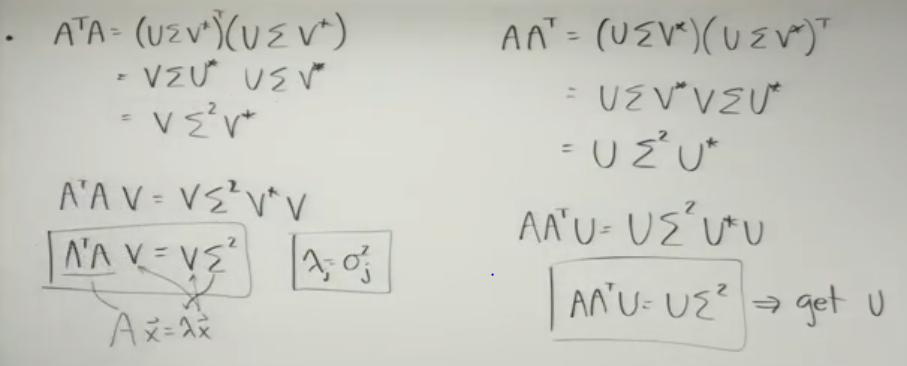 • AᵀA = (UΣV*)ᵀ(UΣV*)
= VΣU* UΣV*
= VΣ²V*
AᵀA V = VΣ²V*V
AᵀA V = VΣ²
λⱼ = σⱼ²
Ax⃗ = λx⃗
AAᵀ = (UΣV*)(UΣV*)ᵀ
= UΣV*VΣU*
= UΣ²U*
AAᵀU = UΣ²U*U
AAᵀU = UΣ² ⇒ get U